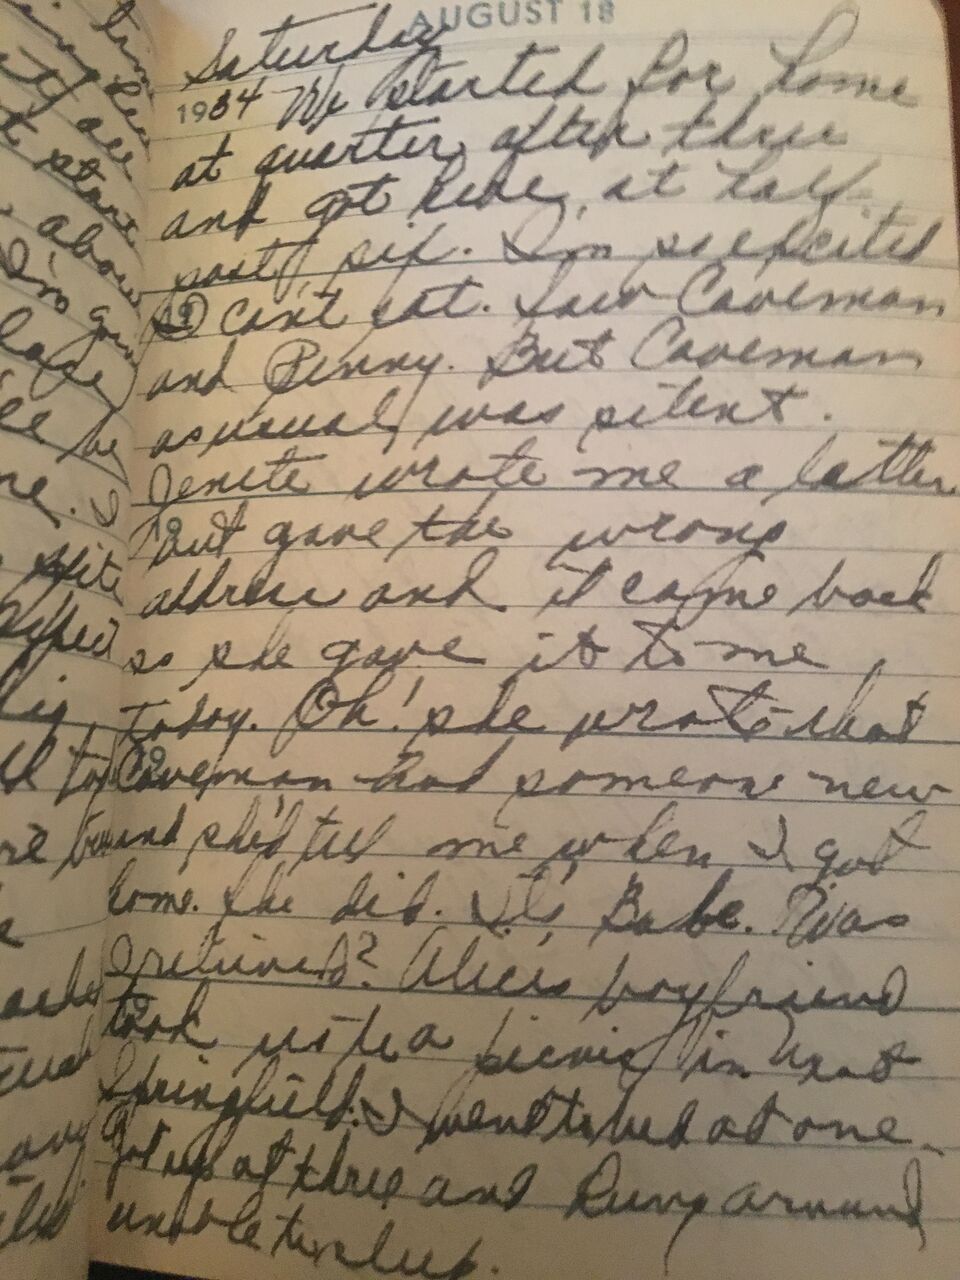 AUGUST 18
Saturday
1934 We started for home
at quarter after three
and got here at half-
past six. I'm so excited
I can't eat. Saw Caveman
and Pinny. But Caveman
as usual, was silent.
wrote me a letter
but gave the wrong
address and it came back
so she gave it to me
today. Oh! she wrote that
Caveman had someone new
and she'd tell me when I got
home. She did. It's Babe. Was
I relieved? Alice's boyfriend
took us to a picnic in West
Springfield. I went to bed at one.
Got up at three and hung around
unable to sleep.